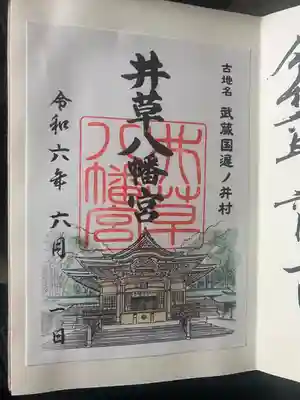 古地名 武蔵国遅ノ井村
井草八幡宮
井草
八幡宮
令和六年 六月 一日